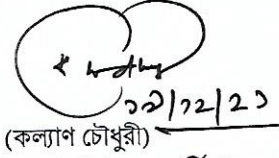 ১৯/১২/২১
(কল্যাণ চৌধুরী)